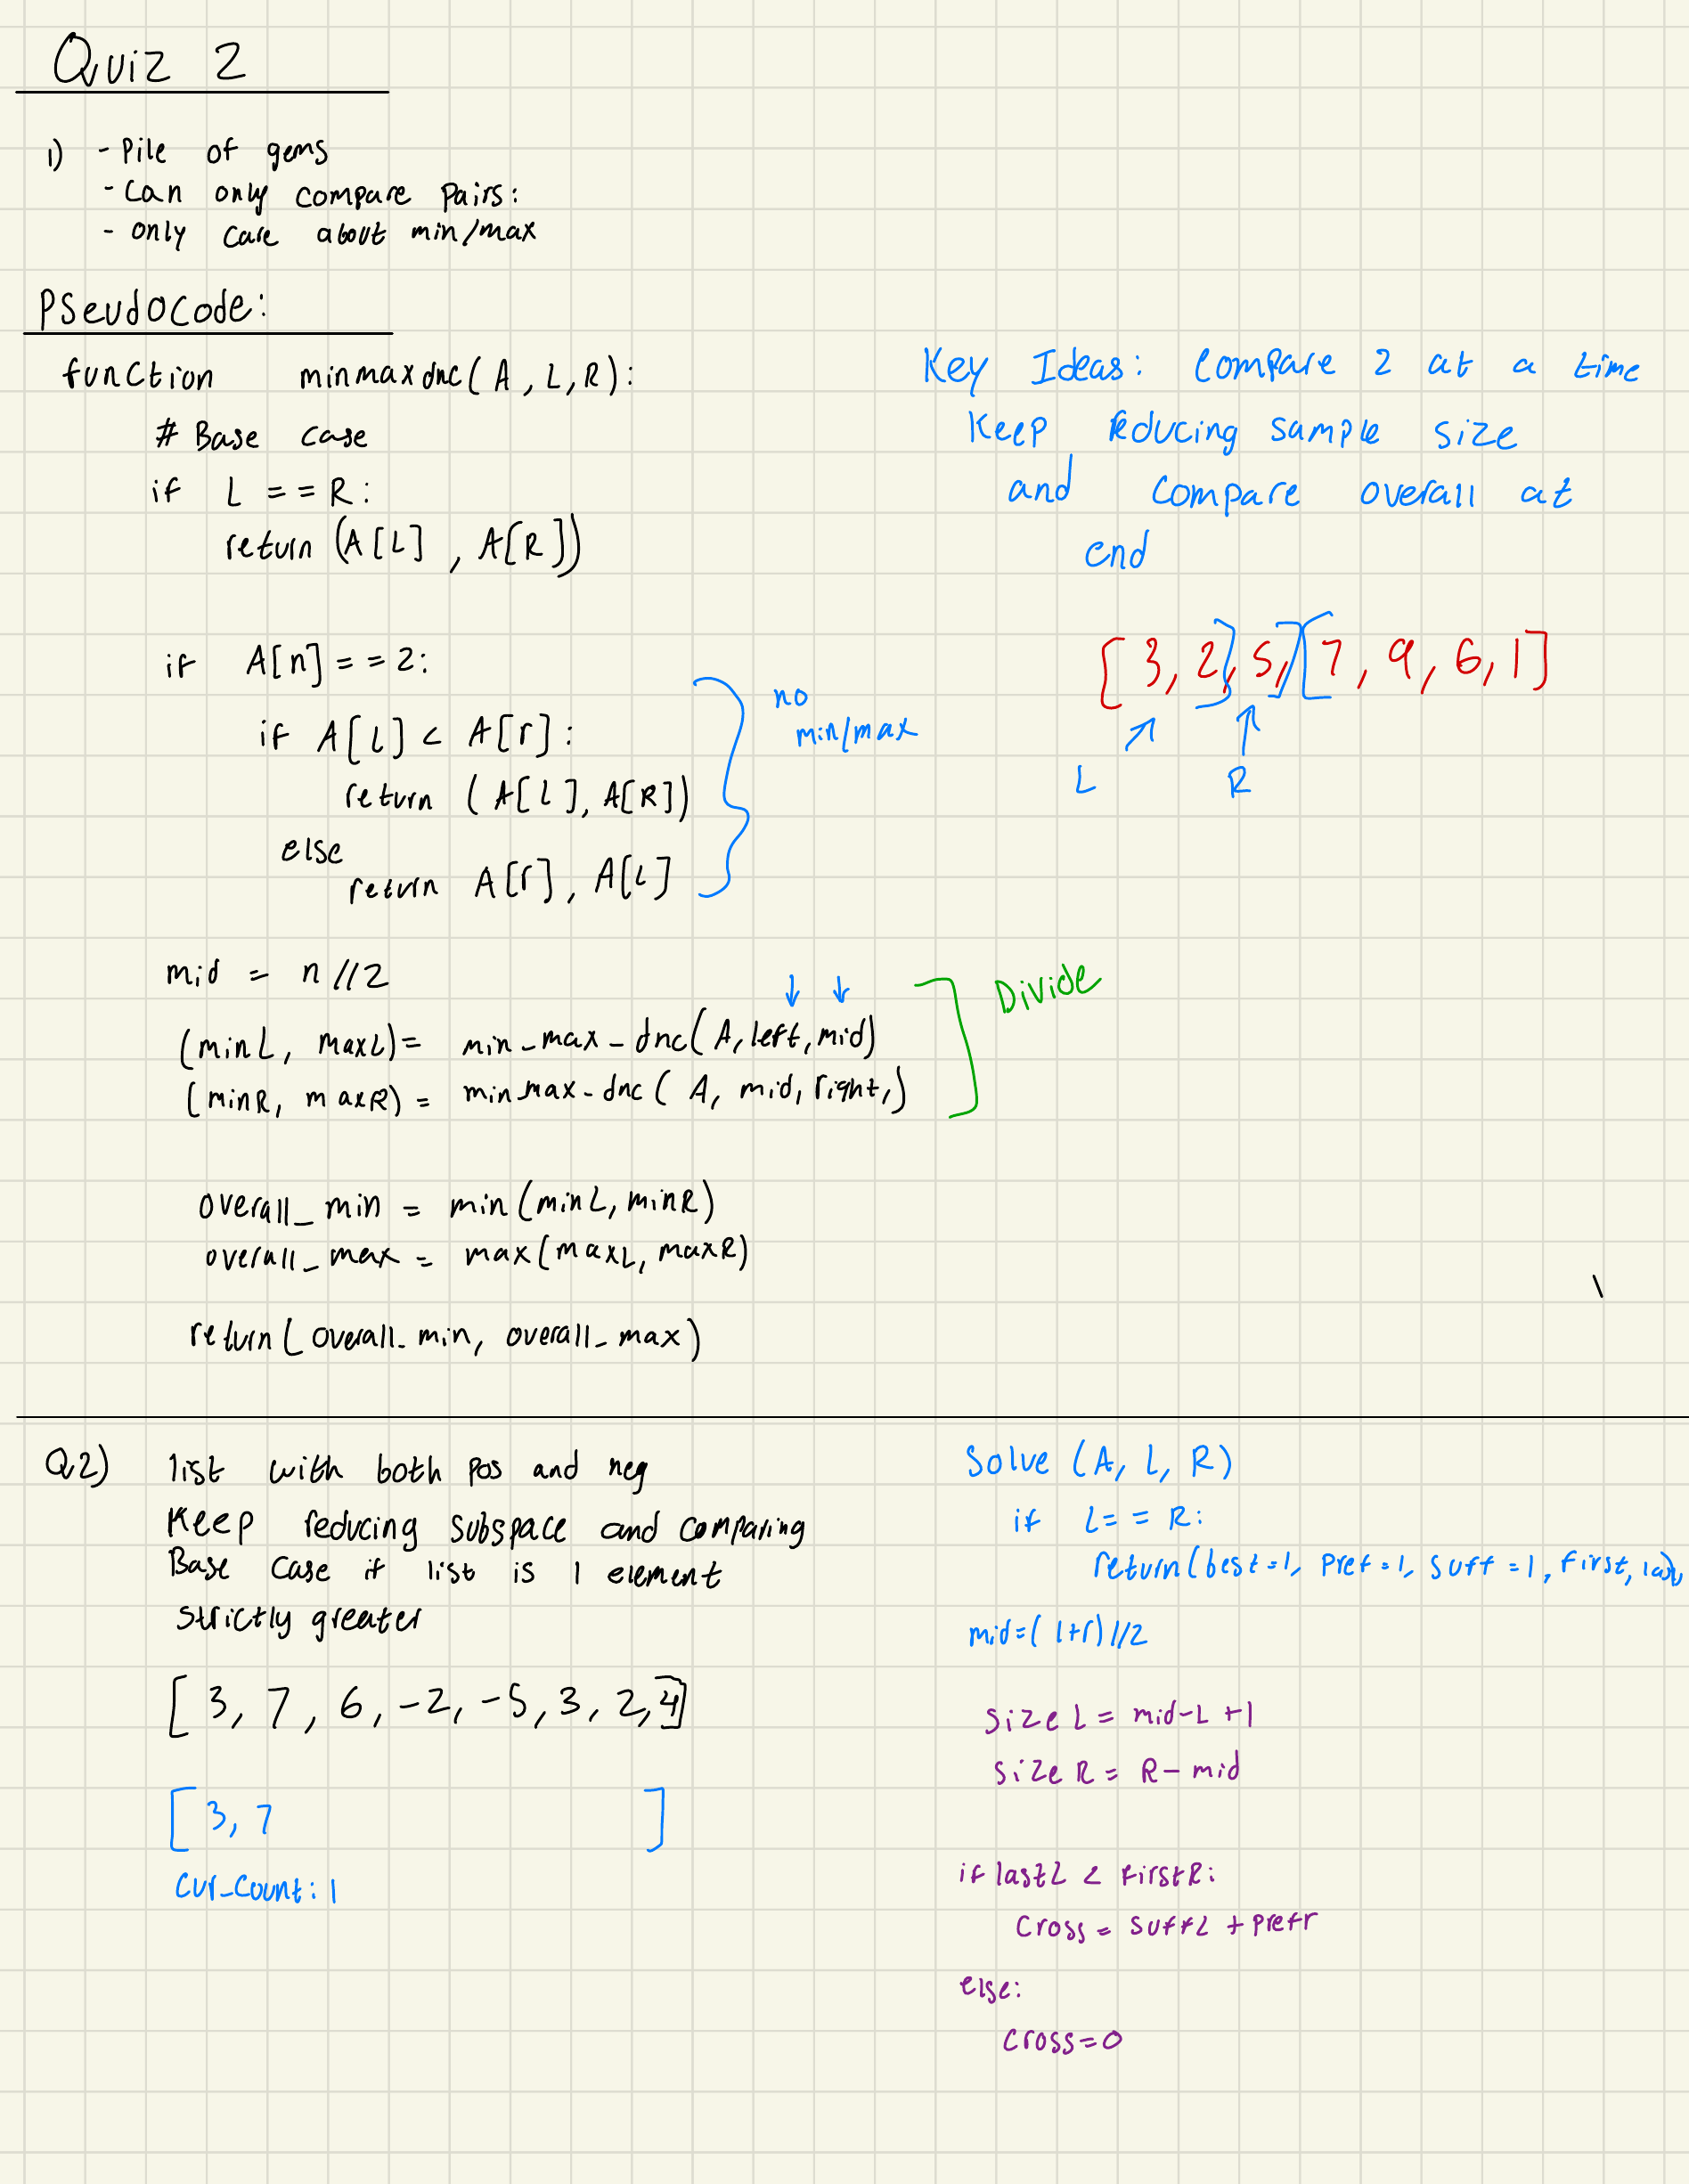 Quiz 2
1) - Pile of gems
- Can only compare Pairs:
- only care about min/max
PSeudoCode:
function minmaxdnc(A, L, R):
# Base case
if L == R:
return (A[L], A[R])
if A[n] == 2:
if A[L] < A[r]:
return (A[L], A[R])
else
return A[r], A[L]
no
min/max
mid = n//2
(minL, maxL) = min_max_dnc(A, left, mid)
(minR, maxR) = minmax-dnc(A, mid, right,)
Divide
overall_min = min(minL, minR)
overall_max = max(maxL, maxR)
return(overall_min, overall_max)
Key Ideas: Compare 2 at a time
Keep reducing sample size
and compare overall at
end
[3, 2], 5,][7, 9, 6, 1]
L R
Q2) list with both pos and neg
Keep reducing subspace and comparing
Base Case if list is 1 element
Strictly greater
[3, 7, 6, -2, -5, 3, 2, 4]
[3, 7 ]
Cur_Count: 1
Solve (A, L, R)
if L == R:
return(best=1, pref=1, suff=1, first, last,
mid=(l+r)//2
size L = mid-L+1
size R = R-mid
if lastL < firstR:
Cross = suffL + prefr
else:
Cross=0